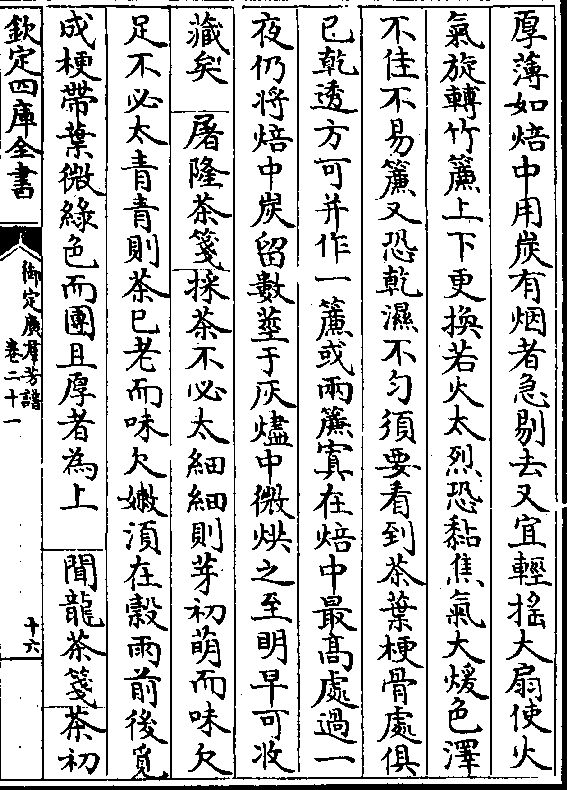 厚薄如焙中用炭有烟者急剔去又宜輕揺大扇使火
氣旋轉竹簾上下更換若火太烈恐黏焦氣太煖色澤
不佳不易簾又恐乾濕不匀須要看到茶葉梗骨處俱
已乾透方可并作一簾或兩簾寘在焙中最髙處過一
夜仍將焙中炭留數莖于灰燼中微烘之至明早可收
藏矣 屠隆茶箋採茶不必太細細則芽初萌而味欠
足不必太青青則茶已老而味欠嫩湏在榖雨前後覓
成梗帶葉微緑色而團且厚者為上 聞龍茶箋茶初
欽定四庫全書
御定廣羣芳譜
卷二十一
十六